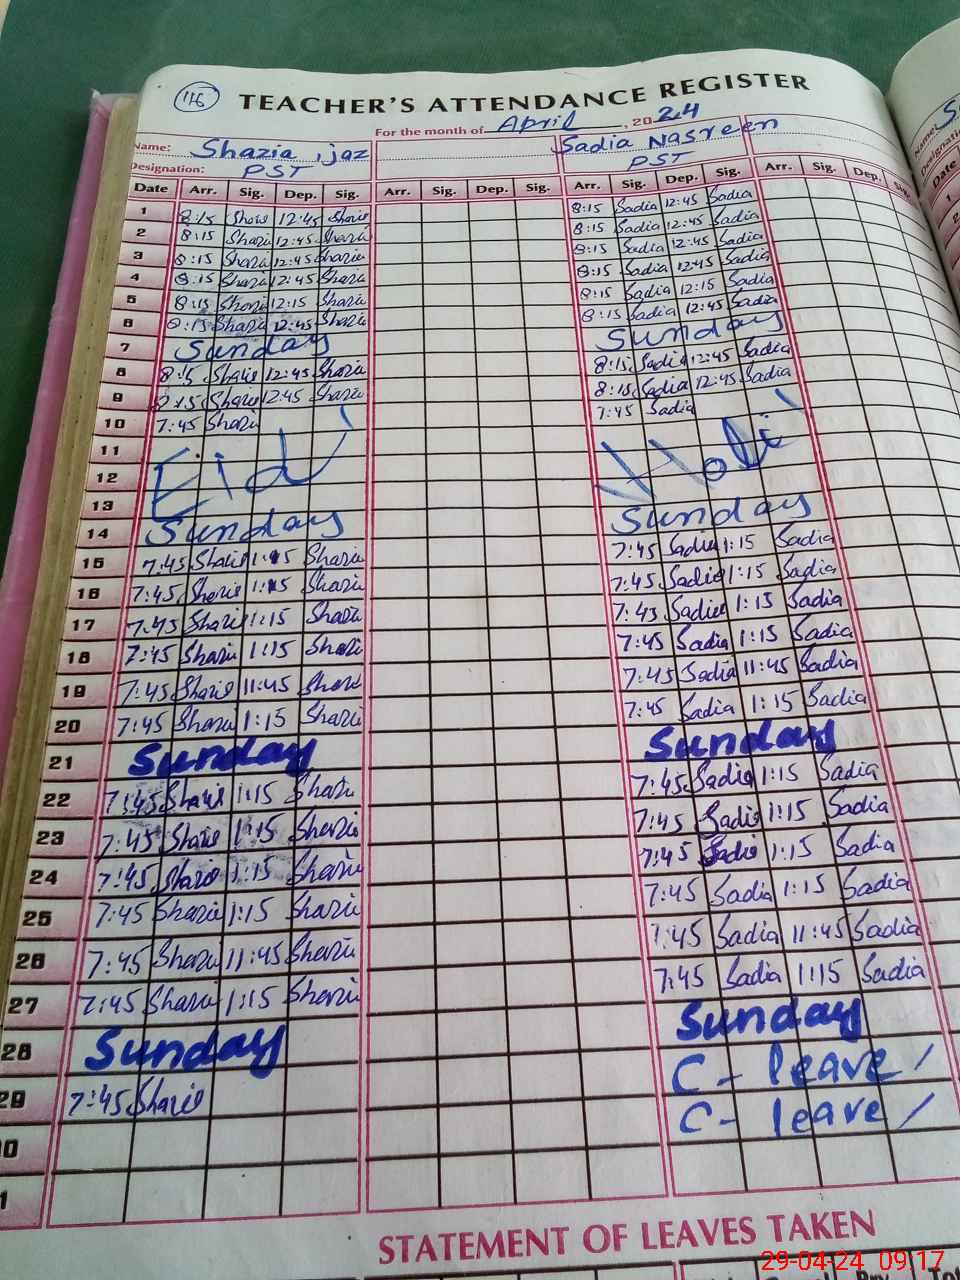 116
TEACHER'S ATTENDANCE REGISTER
For the month of April, 2024
Name: Shazia ijaz Sadia Nasreen
Designation: PST PST
Date Arr. Sig. Dep. Sig. Arr. Sig. Dep. Sig. Arr. Sig. Dep. Sig. Arr. Sig. Dep. Sig.
1 8:15 Shazia 12:45 Shazia 8:15 Sadia 12:45 Sadia
2 8:15 Shazia 12:45 Shazia 8:15 Sadia 12:45 Sadia
3 8:15 Shazia 12:45 Shazia 8:15 Sadia 12:45 Sadia
4 8:15 Shazia 12:45 Shazia 8:15 Sadia 12:45 Sadia
5 8:15 Shazia 12:15 Shazia 8:15 Sadia 12:15 Sadia
6 8:15 Shazia 12:45 Shazia 8:15 Sadia 12:45 Sadia
7 Sunday Sunday
8 8:15 Shazia 12:45 Shazia 8:15 Sadia 12:45 Sadia
9 8:15 Shazia 12:45 Shazia 8:15 Sadia 12:45 Sadia
10 7:45 Shazia 7:45 Sadia
11
12 Eid Holi
13
14 Sunday Sunday
15 7:45 Shazia 1:15 Shazia 7:45 Sadia 1:15 Sadia
16 7:45 Shazia 1:15 Shazia 7:45 Sadia 1:15 Sadia
17 7:45 Shazia 1:15 Shazia 7:45 Sadia 1:15 Sadia
18 7:45 Shazia 1:15 Shazia 7:45 Sadia 1:15 Sadia
19 7:45 Shazia 11:45 Shazia 7:45 Sadia 11:45 Sadia
20 7:45 Shazia 1:15 Shazia 7:45 Sadia 1:15 Sadia
21 Sunday Sunday
22 7:45 Shazia 1:15 Shazia 7:45 Sadia 1:15 Sadia
23 7:45 Shazia 1:15 Shazia 7:45 Sadia 1:15 Sadia
24 7:45 Shazia 1:15 Shazia 7:45 Sadia 1:15 Sadia
25 7:45 Shazia 1:15 Shazia 7:45 Sadia 1:15 Sadia
26 7:45 Shazia 11:45 Shazia 7:45 Sadia 11:45 Sadia
27 7:45 Shazia 1:15 Shazia 7:45 Sadia 1:15 Sadia
28 Sunday Sunday
29 7:45 Shazia C- leave /
C- leave /
STATEMENT OF LEAVES TAKEN
29-04-24 09:17